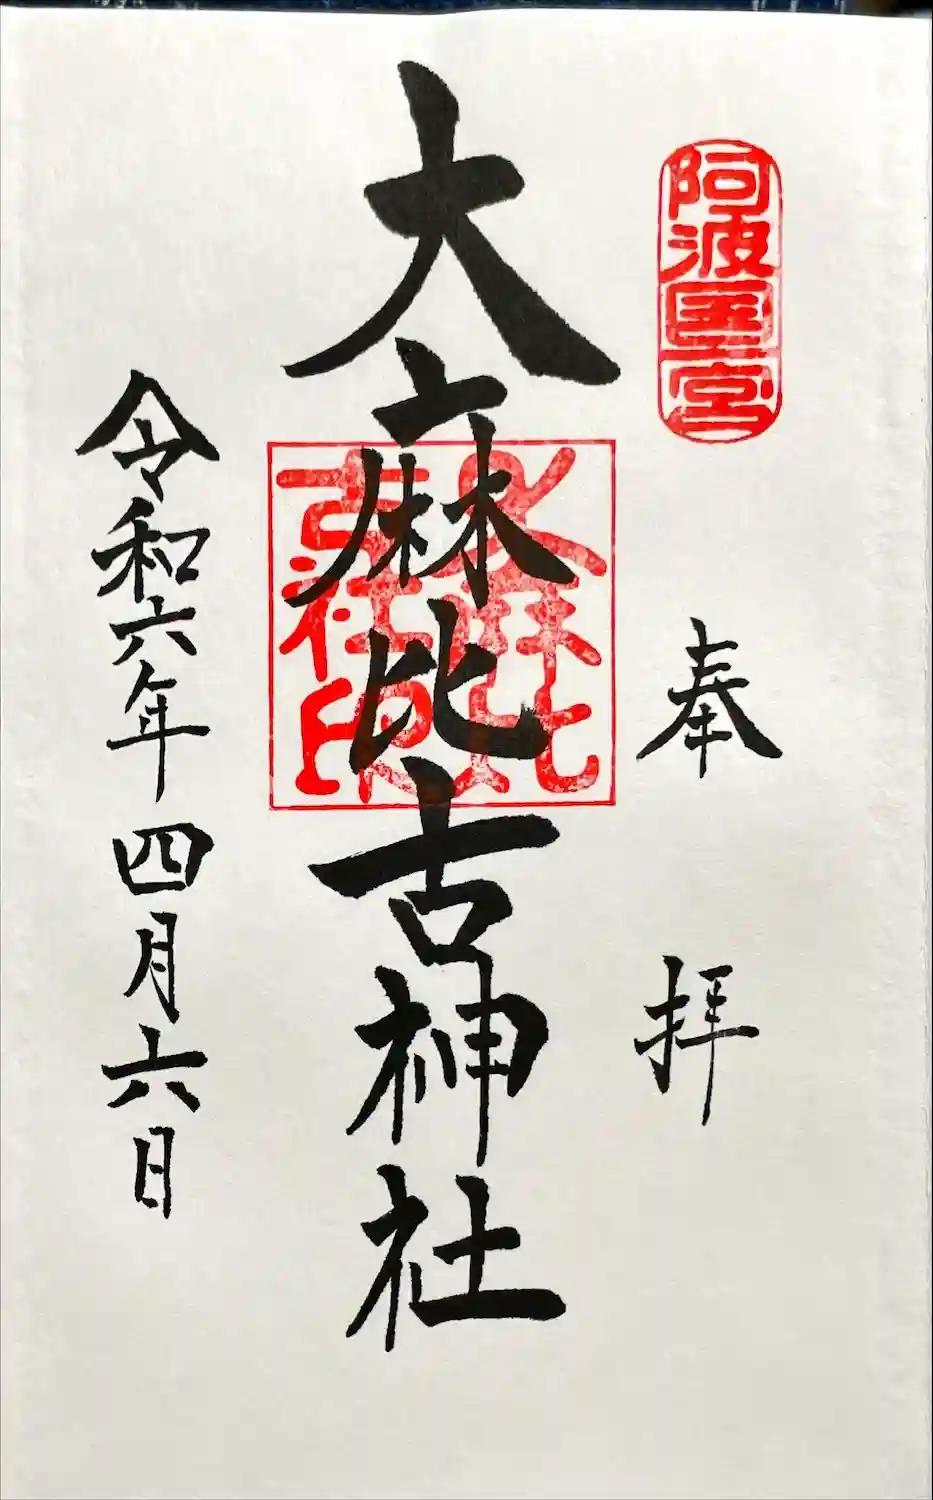 阿波一宮
奉拝
大麻比古神社
大麻比古社印
令和六年四月六日